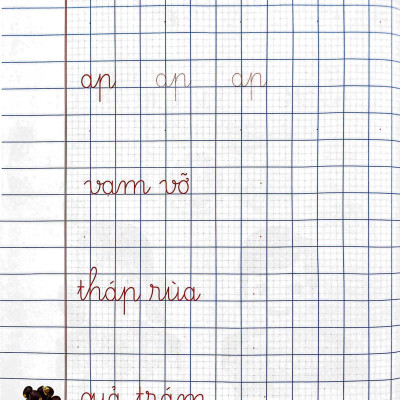 ap ap ap
vạm vỡ
tháp rùa
quả trám